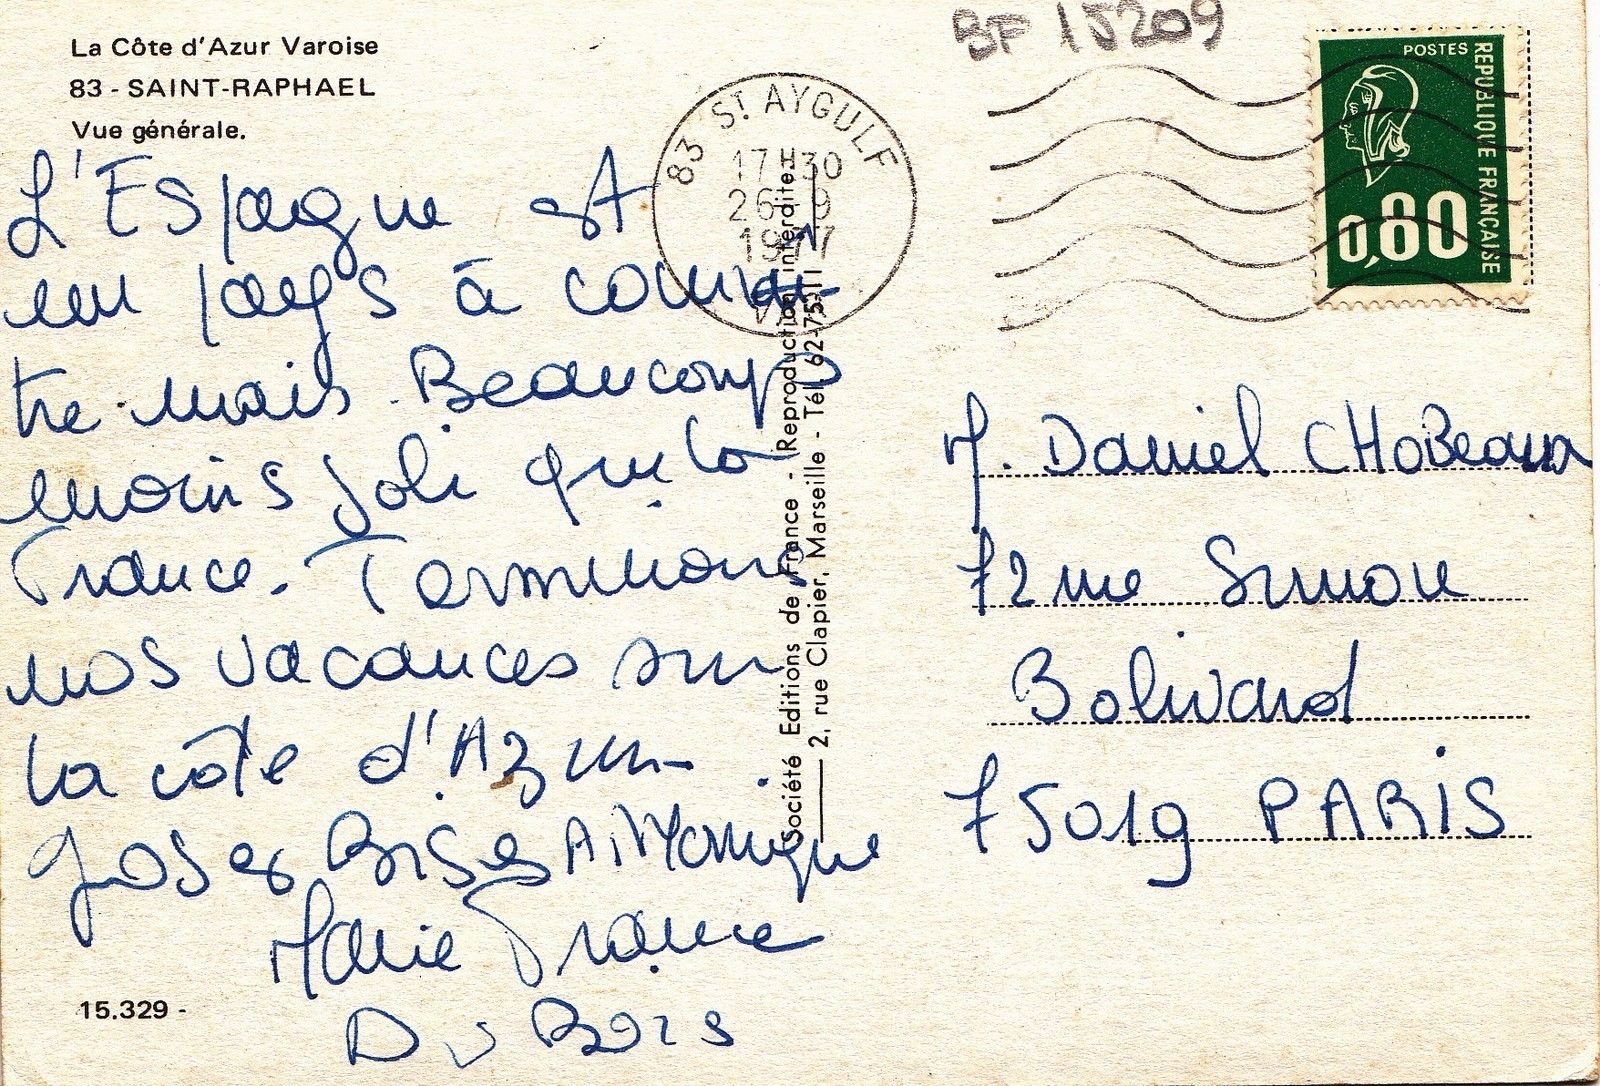 La Côte d'Azur Varoise
83 - SAINT-RAPHAEL
Vue générale.
L'Espagne est
un pays à connai-
tre mais Beaucoup
moins joli que la
France. Terminons
nos vacances sur
la côte d'Azur.
Groses Bises A
Marie France
DuBois
15.329 -
Société Editions de France - Reproduction interdite.
2, rue Clapier, Marseille - Tél. 62-75-11
BF 15209
83 ST AYGULF
17H30
26-9
1977
POSTES
REPUBLIQUE FRANÇAISE
0,80
M. Daniel CHOBeaux
72 rue Simon
Bolivard
75019 PARIS